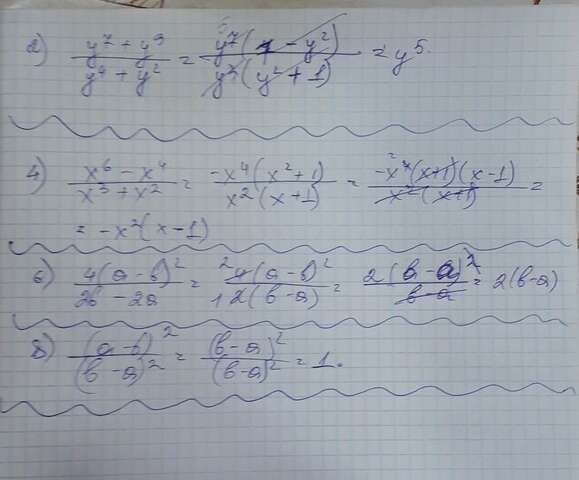 2) (y⁷ + y⁹)/(y⁴ + y²) = y⁷( – y²)/y²(y² + 1) = y⁵.
4) (x⁶ – x⁴)/(x³ + x²) = –x⁴(x² + 1)/x²(x + 1) = –x⁴(x+1)(x–1)/x²(x+1) =
= –x²(x – 1)
6) 4(a – b)²/2b – 2a = 4(a – b)²/2(b – a) = 2(b – a)²/b – a = 2(b – a)
8) (a – b)²/(b – a)² = (b – a)²/(b – a)² = 1.